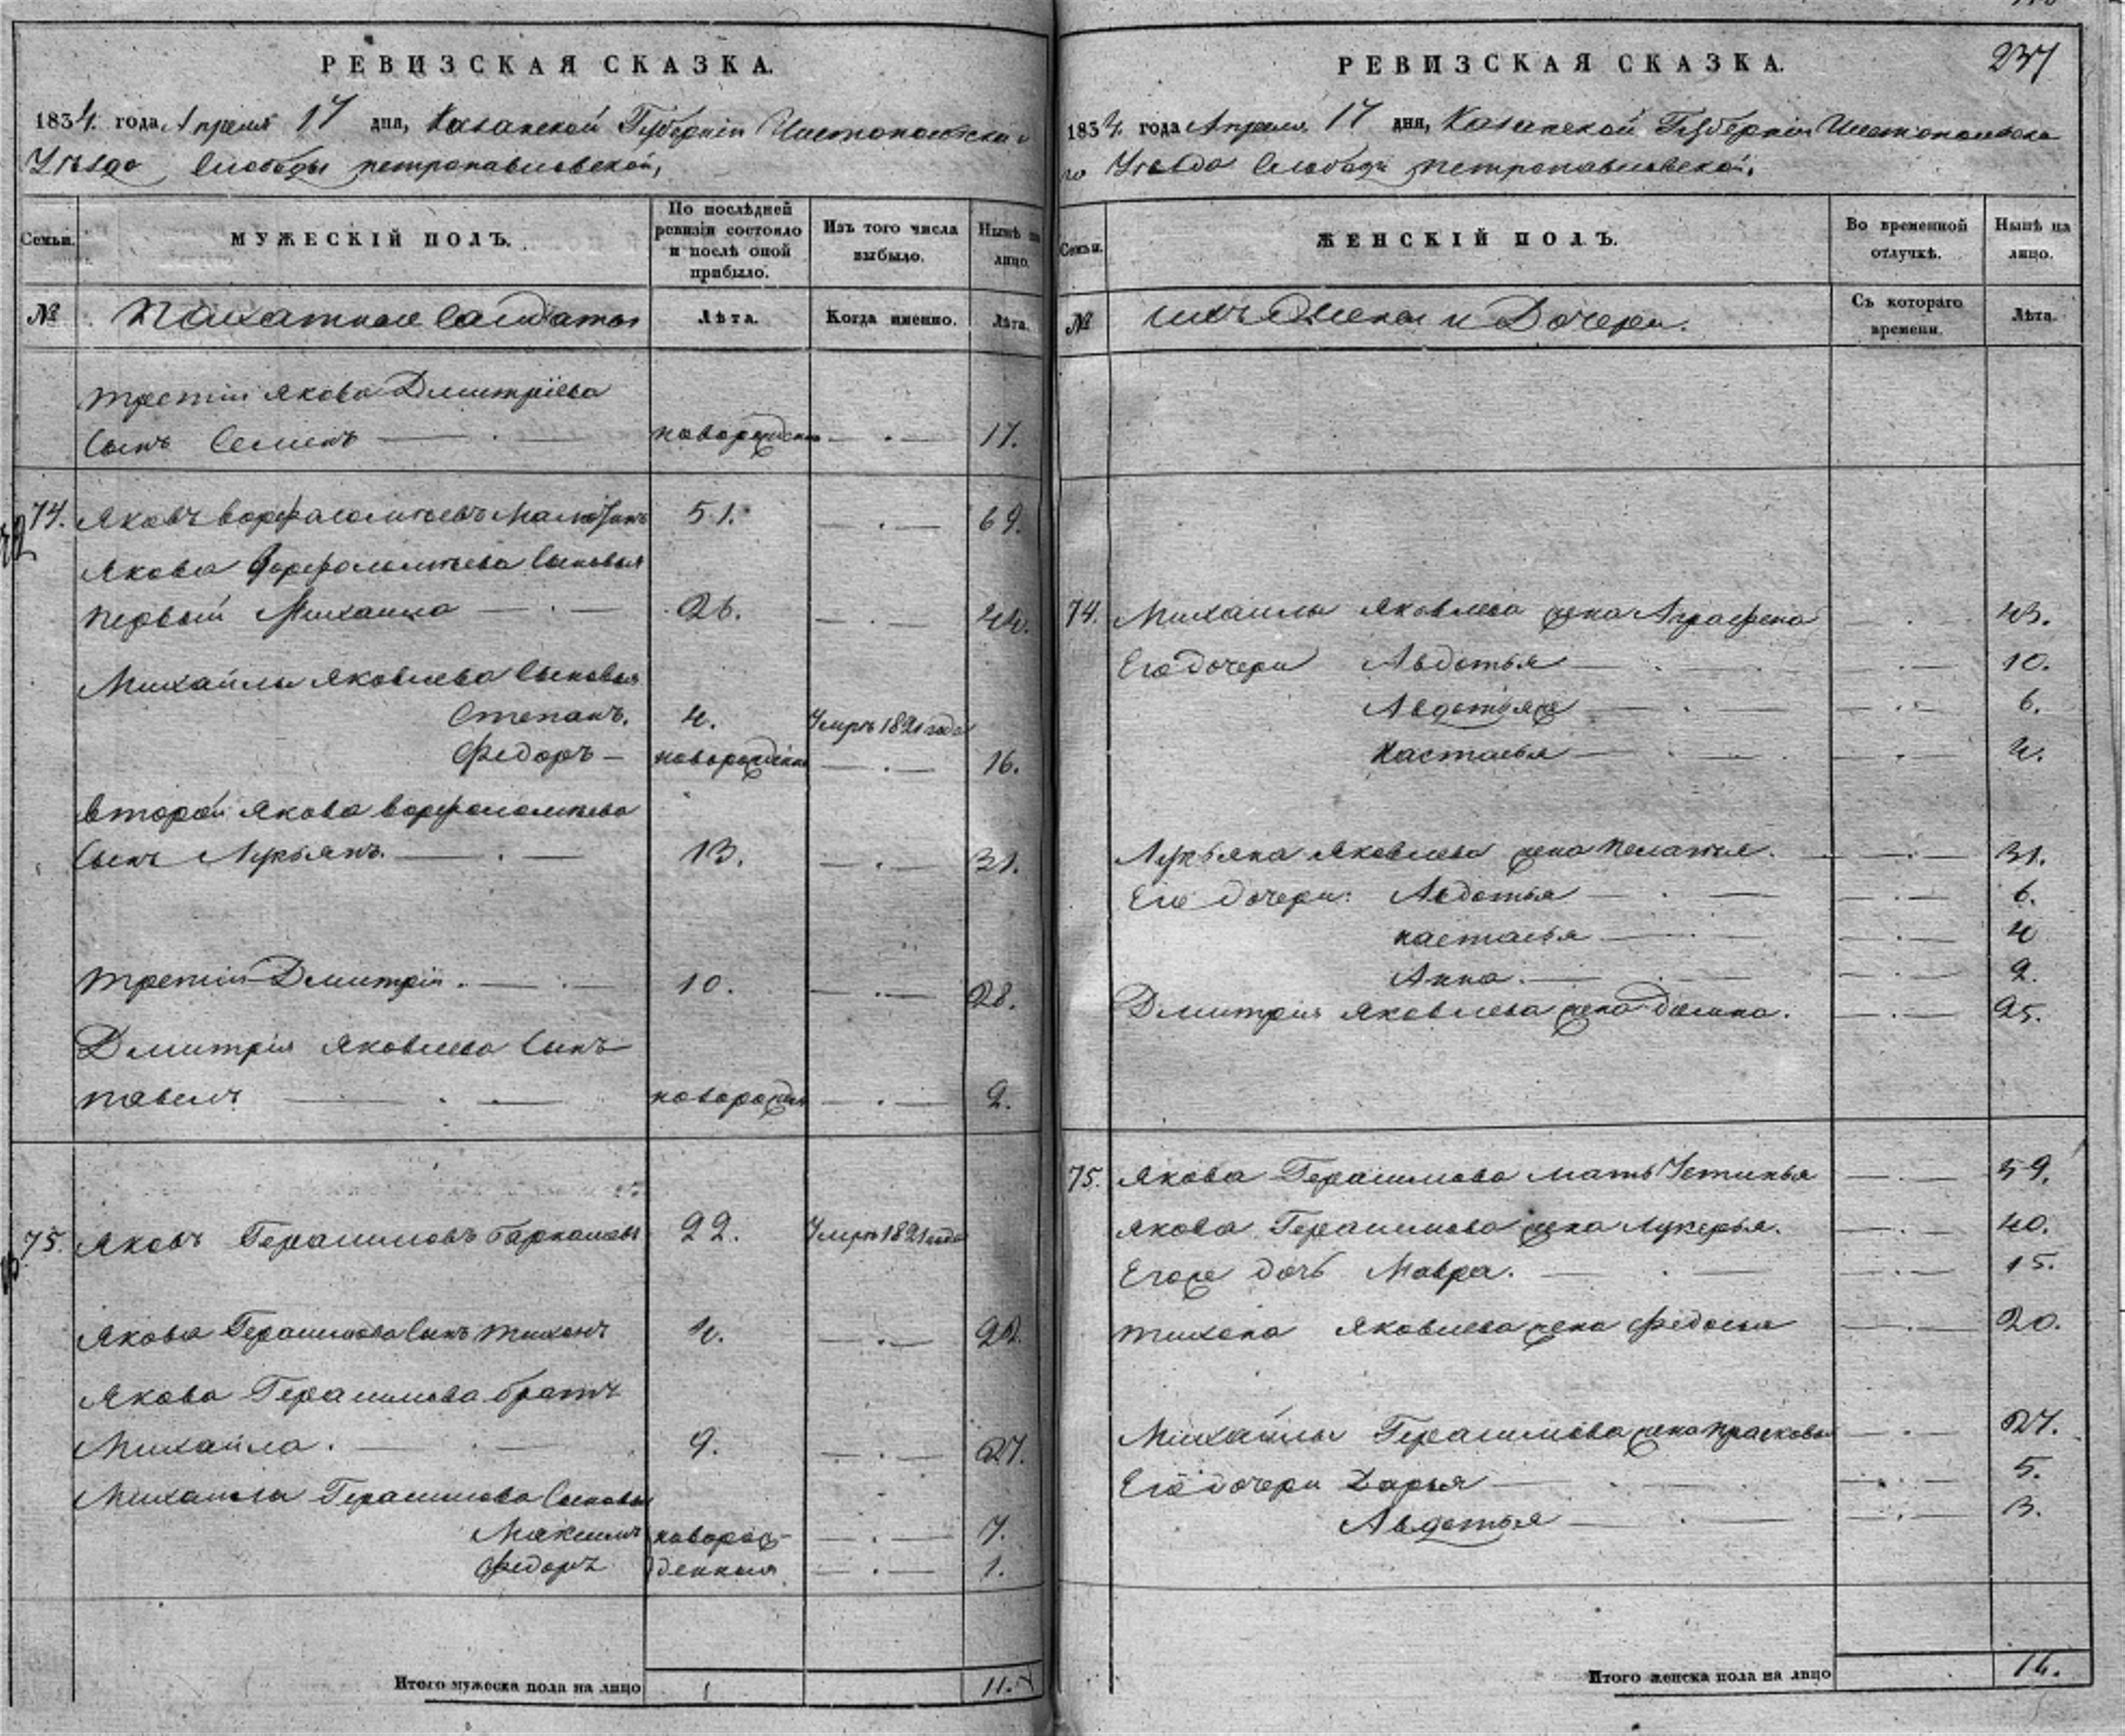 РЕВИЗСКАЯ СКАЗКА.
1834. года Апреля 17 дня, Казанской Губернiи Чистопольска
Уѣзда Слободы петропавловской,
Семьи.
МУЖЕСКIЙ ПОЛЪ.
По послѣдней
ревизiи состояло
и послѣ оной
прибыло.
Изъ того числа
выбыло.
Нынѣ на
лицо.
№
Пахатные Салдаты
Лѣта.
Когда именно.
Лѣта.
третiй Якова Дмитрiева
Сынъ Семенъ новорожден 17.
74. Яковъ Ворфаломѣевъ 51. 69.
Якова Ворфоломѣева Сыновья
первый Михаила 26. 44.
Михайлы Яковлева Сыновья
Степанъ. 4. Умръ 1821 года
Федоръ новорожден 16.
второй Якова Ворфоломѣева
Сынъ Лукьянъ. 13. 31.
третiй Дмитрiй. 10. 28.
Дмитрiя Яковлева Сынъ
павелъ новорожден 2.
75. Яковъ Герасимовъ 22. Умръ 1821 года
Якова Герасимова Сынъ тихонъ 4. 22.
Якова Герасимова братъ
Михайла. 9. 27.
Михаила Герасимова Сыновья
Максимъ новорож- 7.
Федоръ денныя 1.
Итого мужеска пола на лицо 11.
237
РЕВИЗСКАЯ СКАЗКА.
1834. года Апреля 17 дня, Казанской Губернiи Чистопольска
го Уѣзда Слободы петропавловской.
Семьи.
ЖЕНСКIЙ ПОЛЪ.
Во временной
отлучкѣ.
Нынѣ на
лицо.
№
ихъ Жены и Дочери.
Съ котораго
времени.
Лѣта.
74. Михаилы Яковлева жена Аграфена 43.
Его дочери Авдотья 10.
Авдотья же 6.
Настасья 4.
Лукьяна Яковлева жена пелагея. 31.
Его дочери: Авдотья 6.
настасья 4
Анна. 2.
Дмитрия Яковлева жена Домна. 25.
75. Якова Герасимова мать Устинья 59.
Якова Герасимова жена Лукерья. 40.
Егоже дочь Мавра. 15.
тихона Яковлева жена федосья 20.
Михайлы Герасимова жена прасковья 27.
Его дочери Дарья 5.
Авдотья 3.
Итого женска пола на лицо 16.